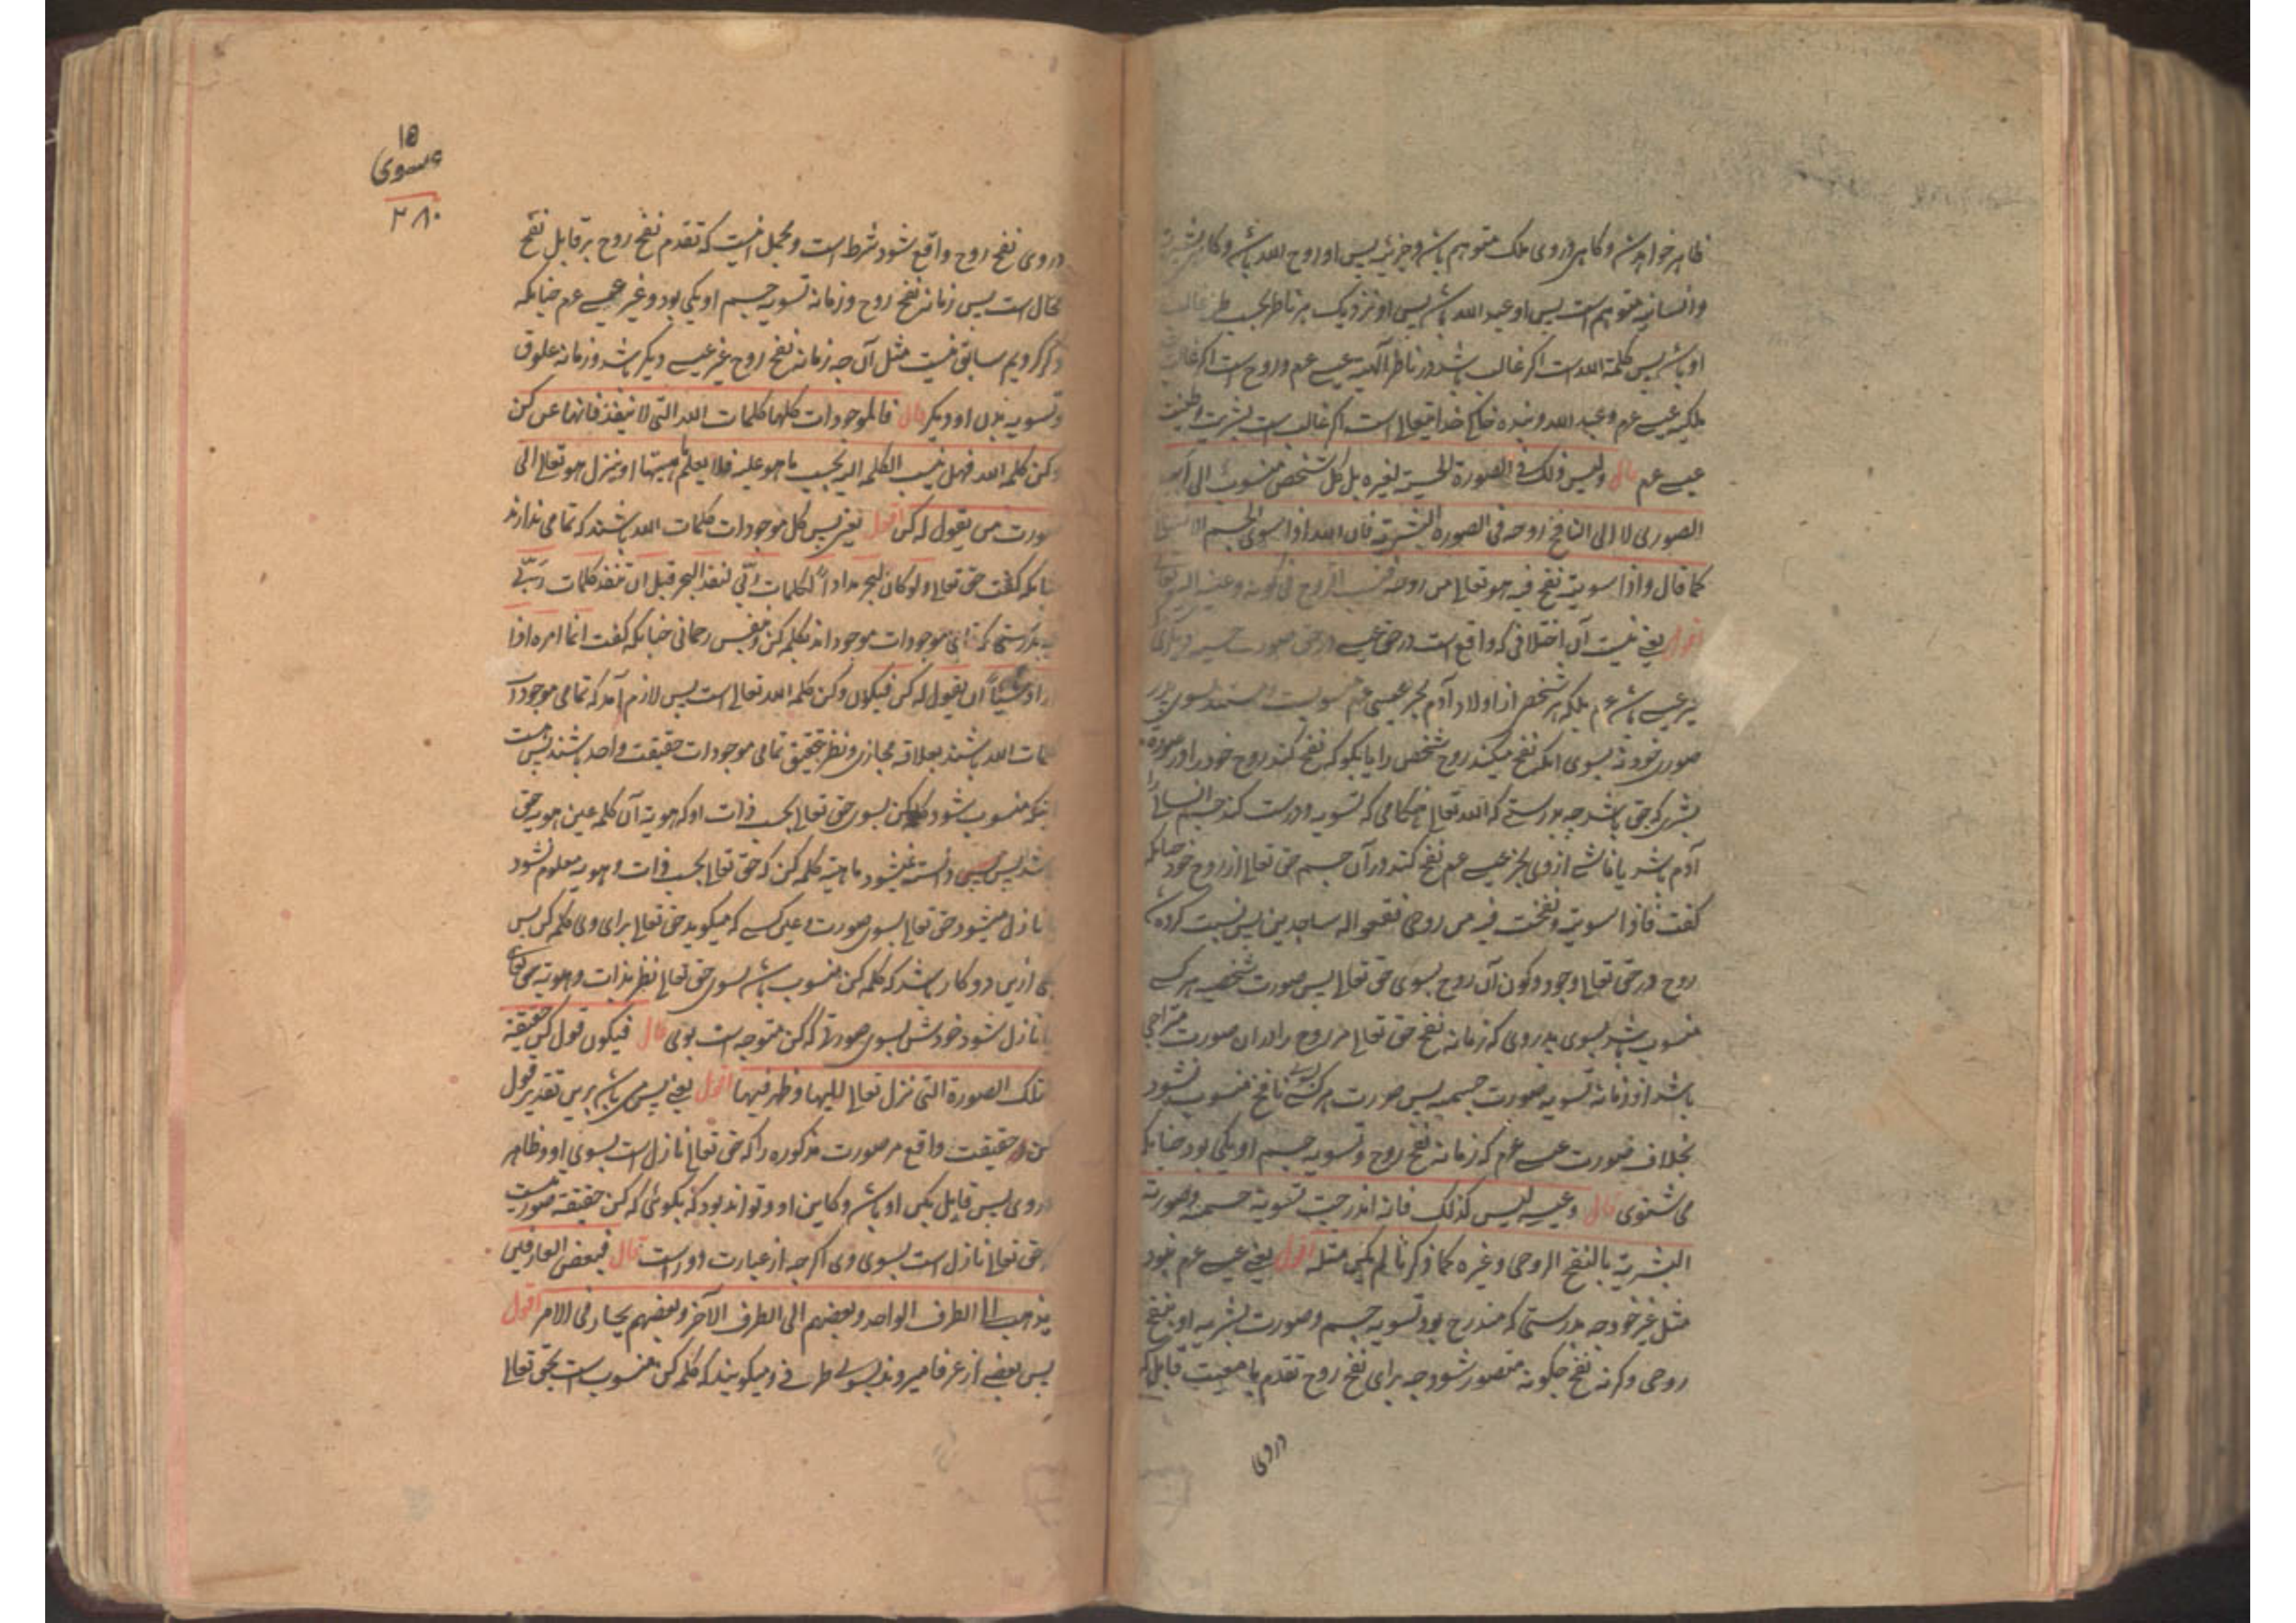 ظاهر خواهد شد و گاهی در وی ملک متوهم باشد و جبرئیل پس او روح الله باشد و گاهی بشریت
و انسانیه متوهم است پس او عبد الله باشد پس او نزدیک هر ناظر بحسب ظن غالب
او باشد پس کلمة الله است اگر غالب باشد در ناظر الهیه عیسی عم و روح است اگر غالب
ملکیه عیسی عم و عبد الله و بنده خدای تعالی است اگر غالب است بشریت
عیسی عم قال ولیس ذلک فی الصورة الحسیة لغیره بل کل شخص منسوب الی ابیه
الصوری لا الی النافخ روحه فی الصورة البشریة فان الله اذا سوی الجسم الانسانی
کما قال واذا سویته نفخ فیه هو تعالی من روحه فنسب الروح فی کونه وعینه الیه تعالی
اقول یعنی نیست آن اختلافی که واقع است در حق عیسی در حق صورت حسیه دیگری
غیر عیسی باشد عم بلکه هر شخص از اولاد آدم بجز عیسی عم منسوبست بسوی پدر
صوری خود نه بسوی آنکه نفخ میکند روح شخص را یا بگو که نفخ کند روح خود را در صورة
بشری که حق باشد چه بدرستی که الله تعالی هنگامی که تسویه و درست کند جسم انسانی را
آدم باشد یا ناشی از وی بجز عیسی عم نفخ کند در آن جسم حق تعالی از روح خود چنانکه
گفت فاذا سویته ونفخت فیه من روحی فقعوا له ساجدین پس نسبت کرده شد
روح در حق تعالی وجود و کون آن روح بسوی حق تعالی پس صورت شخصیه هر کس
منسوب باشد بسوی پدر وی که زمانه نفخ حق تعالی مر روح را در ان صورت متراخی
باشد از زمانه تسویه صورت جسمیه پس صورت هر کسی بسوی نافخ منسوب نشود
بخلاف صورت عیسی عم که زمانه نفخ روح و تسویه جسم او یکی بود چنانکه
می شنوی قال وعیسی لیس کذلک فانه اندرجت تسویة جسمه وصورته
البشریة بالنفخ الروحی وغیره کما ذکرنا لم یکن مثله اقول یعنی عیسی عم نبود
مثل غیر خود چه بدرستی که مندرج بود تسویه جسم و صورت بشریه او بنفخ
روحی و گرنه نفخ چگونه متصور شود چه برای نفخ روح تقدم یا معیت قابل که
در وی
۱۵
عیسوی
۲۸۰
در وی نفخ روح واقع شود شرط است و محتمل نیست که تقدم نفخ روح بر قابل نفخ
محال است پس زمانه نفخ روح و زمانه تسویه جسم او یکی بود و غیر عیسی عم چنانکه
ذکر کردیم سابق نیست مثل آن چه زمانه نفخ روح غیر عیسی دیگر باشد و زمانه علوق
و تسویه بدن او دیگر قال فالموجودات کلها کلمات الله التی لا تنفد فانها عن کن
وکن کلمة الله فهل ینسب الکلمة الیه بحسب ما هو علیه فلا یعلم ماهیتها او ینزل هو تعالی الی
صورت من یقول له کن اقول یعنی پس کل موجودات کلمات الله باشند که تمامی ندارند
چنانکه گفت حق تعالی ولو کان البحر مدادا لکلمات ربی لنفد البحر قبل ان تنفد کلمات ربی
چه بدرستی که این موجودات موجود اند بکلمه کن و نفس رحمانی چنانکه گفت انما امره اذا
اراد شیئا ان یقول له کن فیکون وکن کلمة الله تعالی است پس لازم آمد که تمامی موجودات
کلمات الله باشند بعلاقه مجازی و نظر بتحقیق تمامی موجودات حقیقت واحد باشند پس
اینکه منسوب شود کلمه کن بسوی حق تعالی بحسب ذات او که هویة آن کلمه عین هویه حق
باشد پس دانسته نمیشود ماهیة کلمه کن که حق تعالی بحسب ذات و هویه معلوم نشود
یا نازل میشود حق تعالی بسوی صورت و عین کسی که میگوید حق تعالی برای وی کلمه کن پس
یکی ازین دو کار باشد که کلمه کن منسوب باشد بسوی حق تعالی نظر بذات و هویه حق تعالی
یا نازل شود خودش بسوی صورتی که کن متوجه است بوی قال فیکون قول کن حقیقة
لتلک الصورة التی نزل تعالی الیها وظهر فیها اقول یعنی پس می باشد برین تقدیر قول
کن حقیقت واقع مر صورت مذکوره را که حق تعالی نازل است بسوی او و ظاهر
در وی پس قایل بکن او باشد و کاین او و تواند بود که بگوئی که کن حقیقة صورتیست
که حق تعالی نازل است بسوی وی اگرچه از عبارت دور است قال فبعض العارفین
یذهب الی الطرف الواحد وبعضهم الی الطرف الآخر وبعضهم یحار فی الامر اقول
پس بعضی از عرفا میروند بسوی طرفی و میگویند که کلمه کن منسوب است بحق تعالی